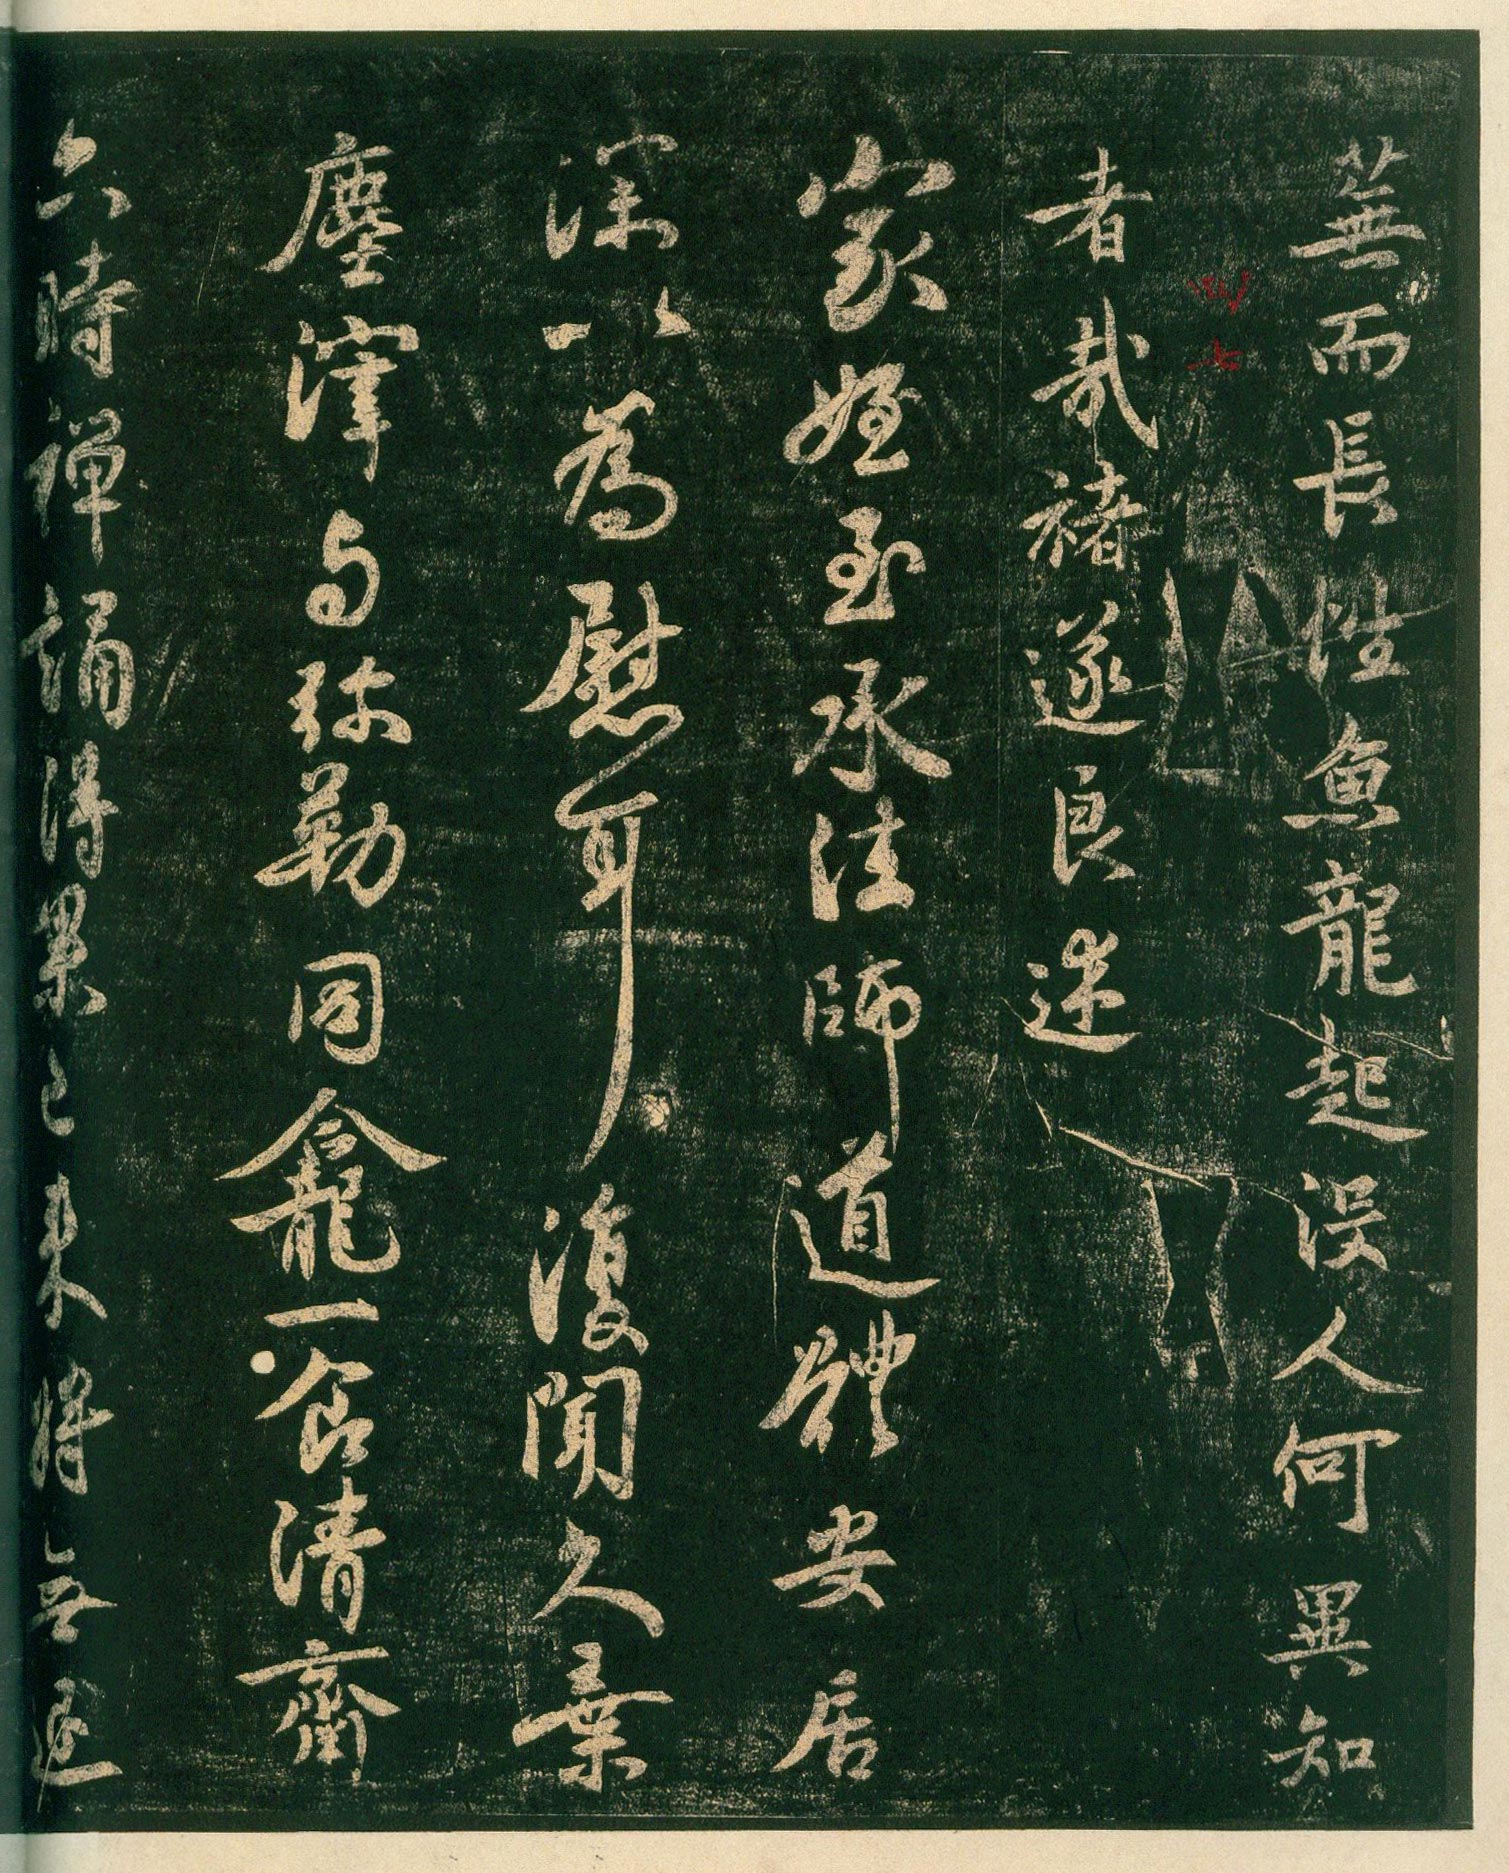 蕪而長性魚龍起没人何異知
者哉褚遂良述
家姪至承法師道體安居
深以為慰耳復聞久棄
塵滓与弥勒同龕一食清齋
六時禅誦得果已来將无退